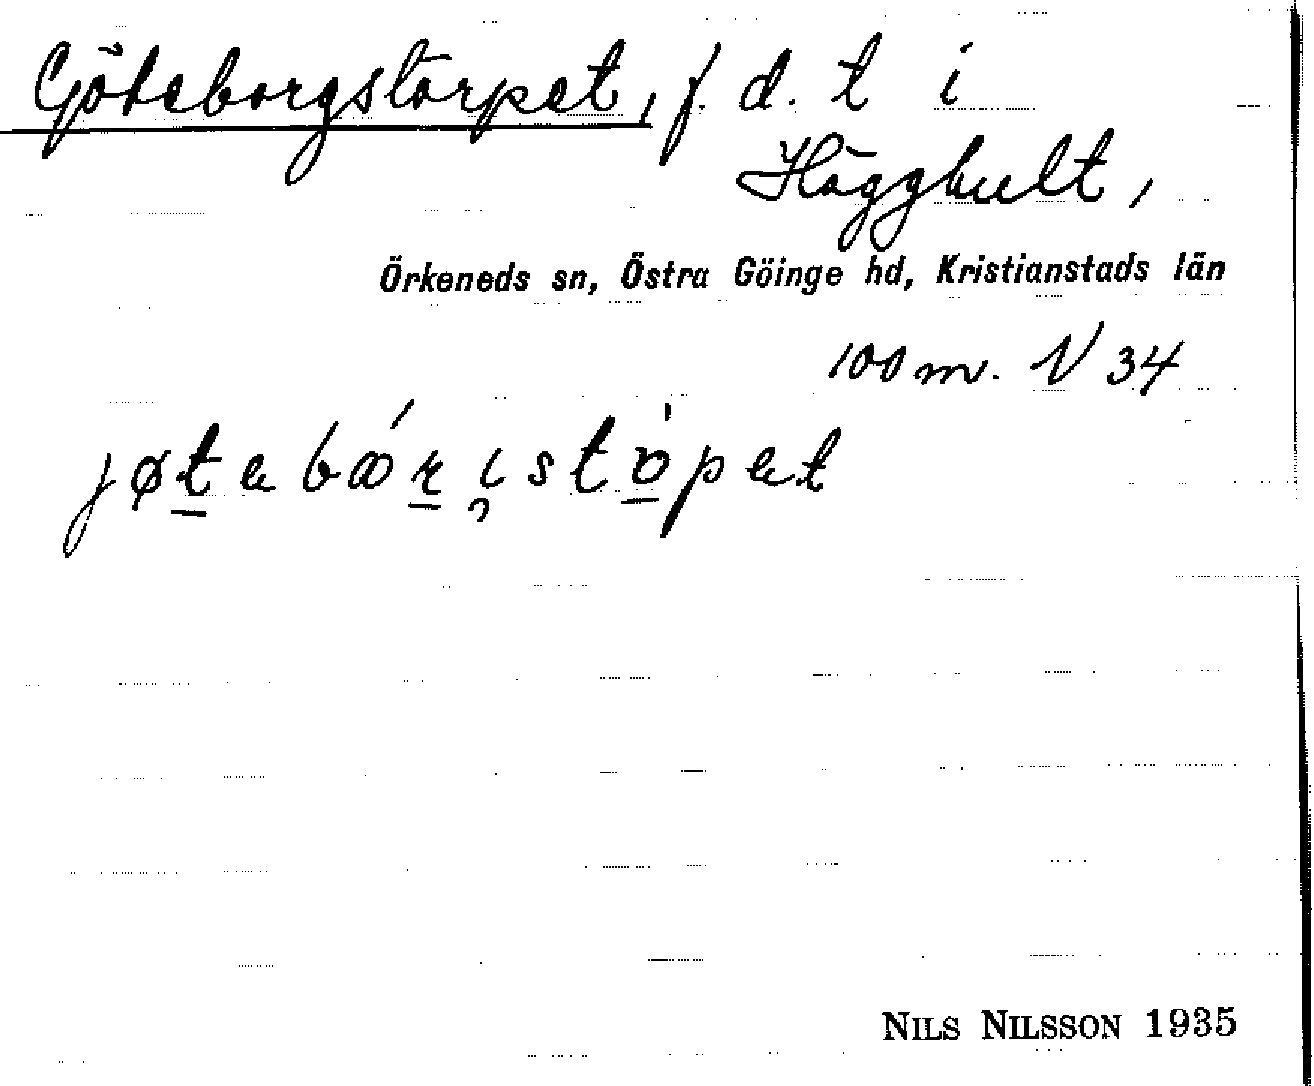 Göteborgstorpet, f. d. t i
Hägghult,
Örkeneds sn, Östra Göinge hd, Kristianstads län
100 m. N 34
NILS NILSSON 1935